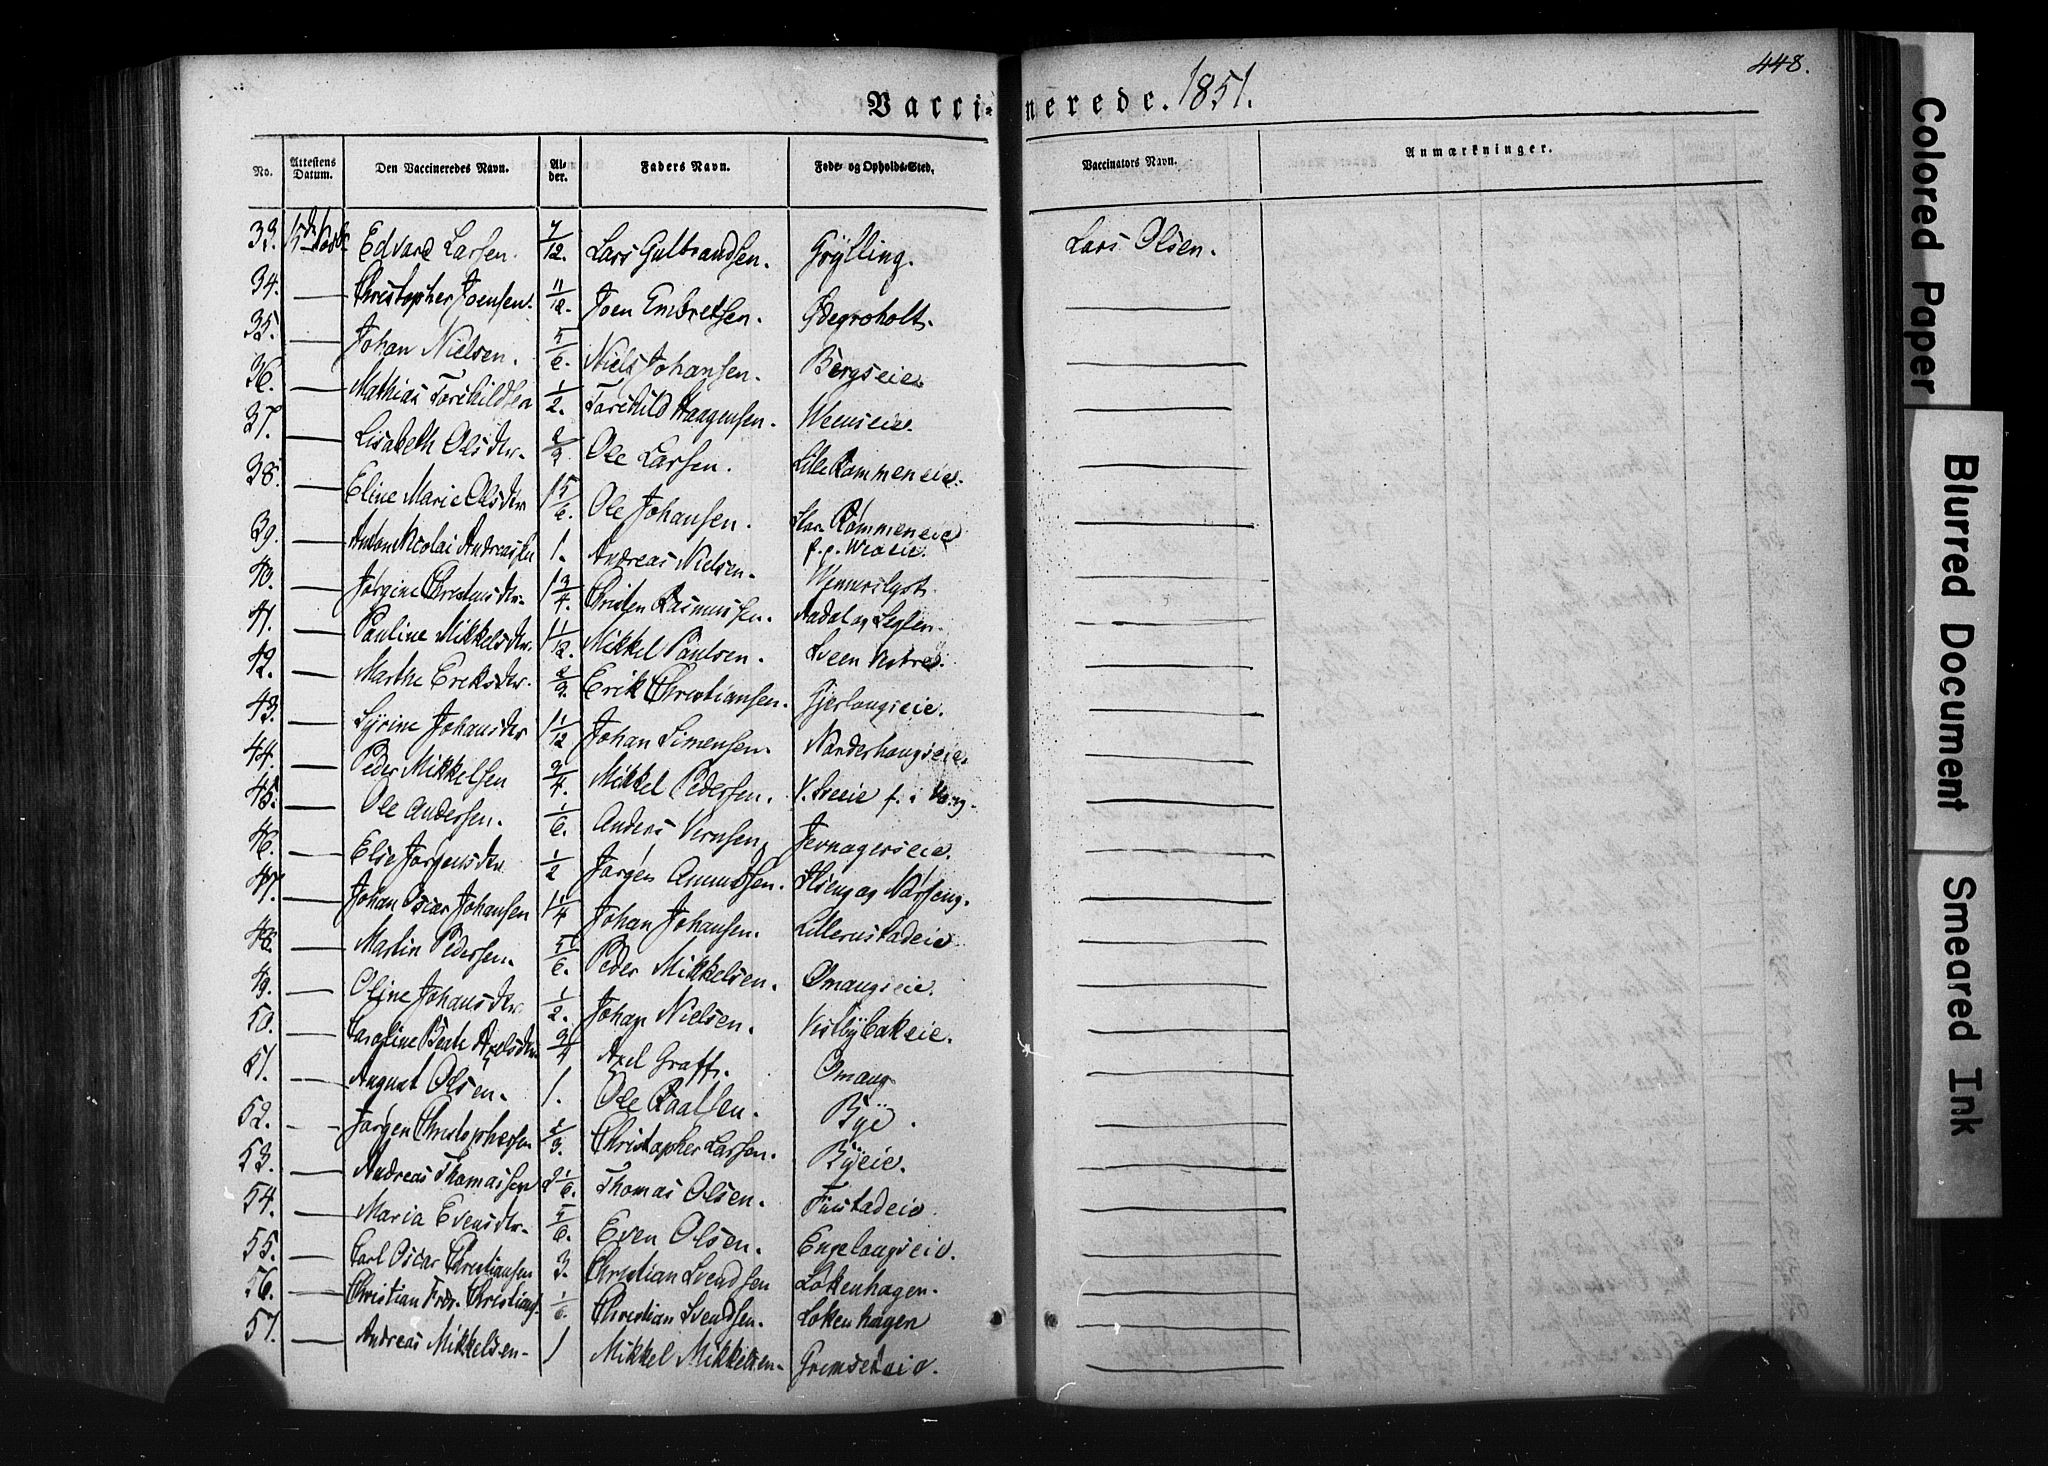 448.
Vacci- nerede. 1851.
No. Attestens Datum. Den Vaccineredes Navn. Al- der. Faders Navn. Føde- og Opholds-Sted. Vaccinators Navn. Anmærkninger.
33. 15de Edvard Larsen. 7/12. Lars Gulbrandsen. Grylling. Lars Olsen.
34. — Christopher Joensen. 11/12. Joen Embretsen. Ødegroholt. —
35. — Johan Nielsen. 5/6. Niels Johansen. Bergseie. —
36. — Mathias Torchildsen 1/2. Torchild Haagensen. Weenseie. —
37. — Lisabeth Olsdtr. 2/3. Ole Larsen. Lille Rommeneie. —
38. — Eline Marie Olsdtr 1 5/6. Ole Johansen. Stor Rommeneie —
39. — Anton Nicolai Andreassen 1. Andreas Nielsen. f. p. —
40. — Jørgine Christensdtr. 1 3/4. Christen Rasmussen. —
41. — Pauline Mikkelsdtr. 1 1/12. Mikkel Paulsen. Sveen Vestre. —
42. — Marthe Eriksdtr. 2/3. Erik Christiansen. Gjerlaugseie. —
43. — Syrine Johansdtr 1 1/12 Johan Simensen. Norderhougseie. —
44. — Peder Mikkelsen 3/4. Mikkel Pedersen. V. Sveeie f. i Vang. —
45. — Ole Andersen. 1/6. Anders Jernagerseie. —
46. — Else Jørgensdtr 1/2 Jørgen Amundsen. —
47. — Johan Oscar Johansen 1 1/4 Johan Johansen. Lillerustadeie —
48. — Martin Pedersen. 5/6. Peder Mikkelsen. Omangseie. —
49. — Oline Johansdtr. 1/2. Johan Nielsen. Vestbybakeie. —
50. — Caroline Beate Axelsdtr. 3/4 Axel Graff. Omang —
51. — August Olsen. 1. Ole Paalsen. Bye. —
52. — Jørgen Christophersen 2/3. Christopher Larsen. Byeie. —
53. — Andreas Thomassen 2 1/6. Thomas Olsen. Finstadeie —
54. — Maria Evensdtr. 5/6. Even Olsen. Engelaugseie. —
55. — Carl Oscar Christiansen 3. Christian Svendsen Løkenhagen. —
56. — Christian Fredr. Christians. 1/6. Christian Svendsen. Løkenhagen —
57. — Andreas Mikkelsen. 1 Mikkel Mikkelsen. Grimseteie. —
Colored Paper
Blurred Document
Smeared Ink